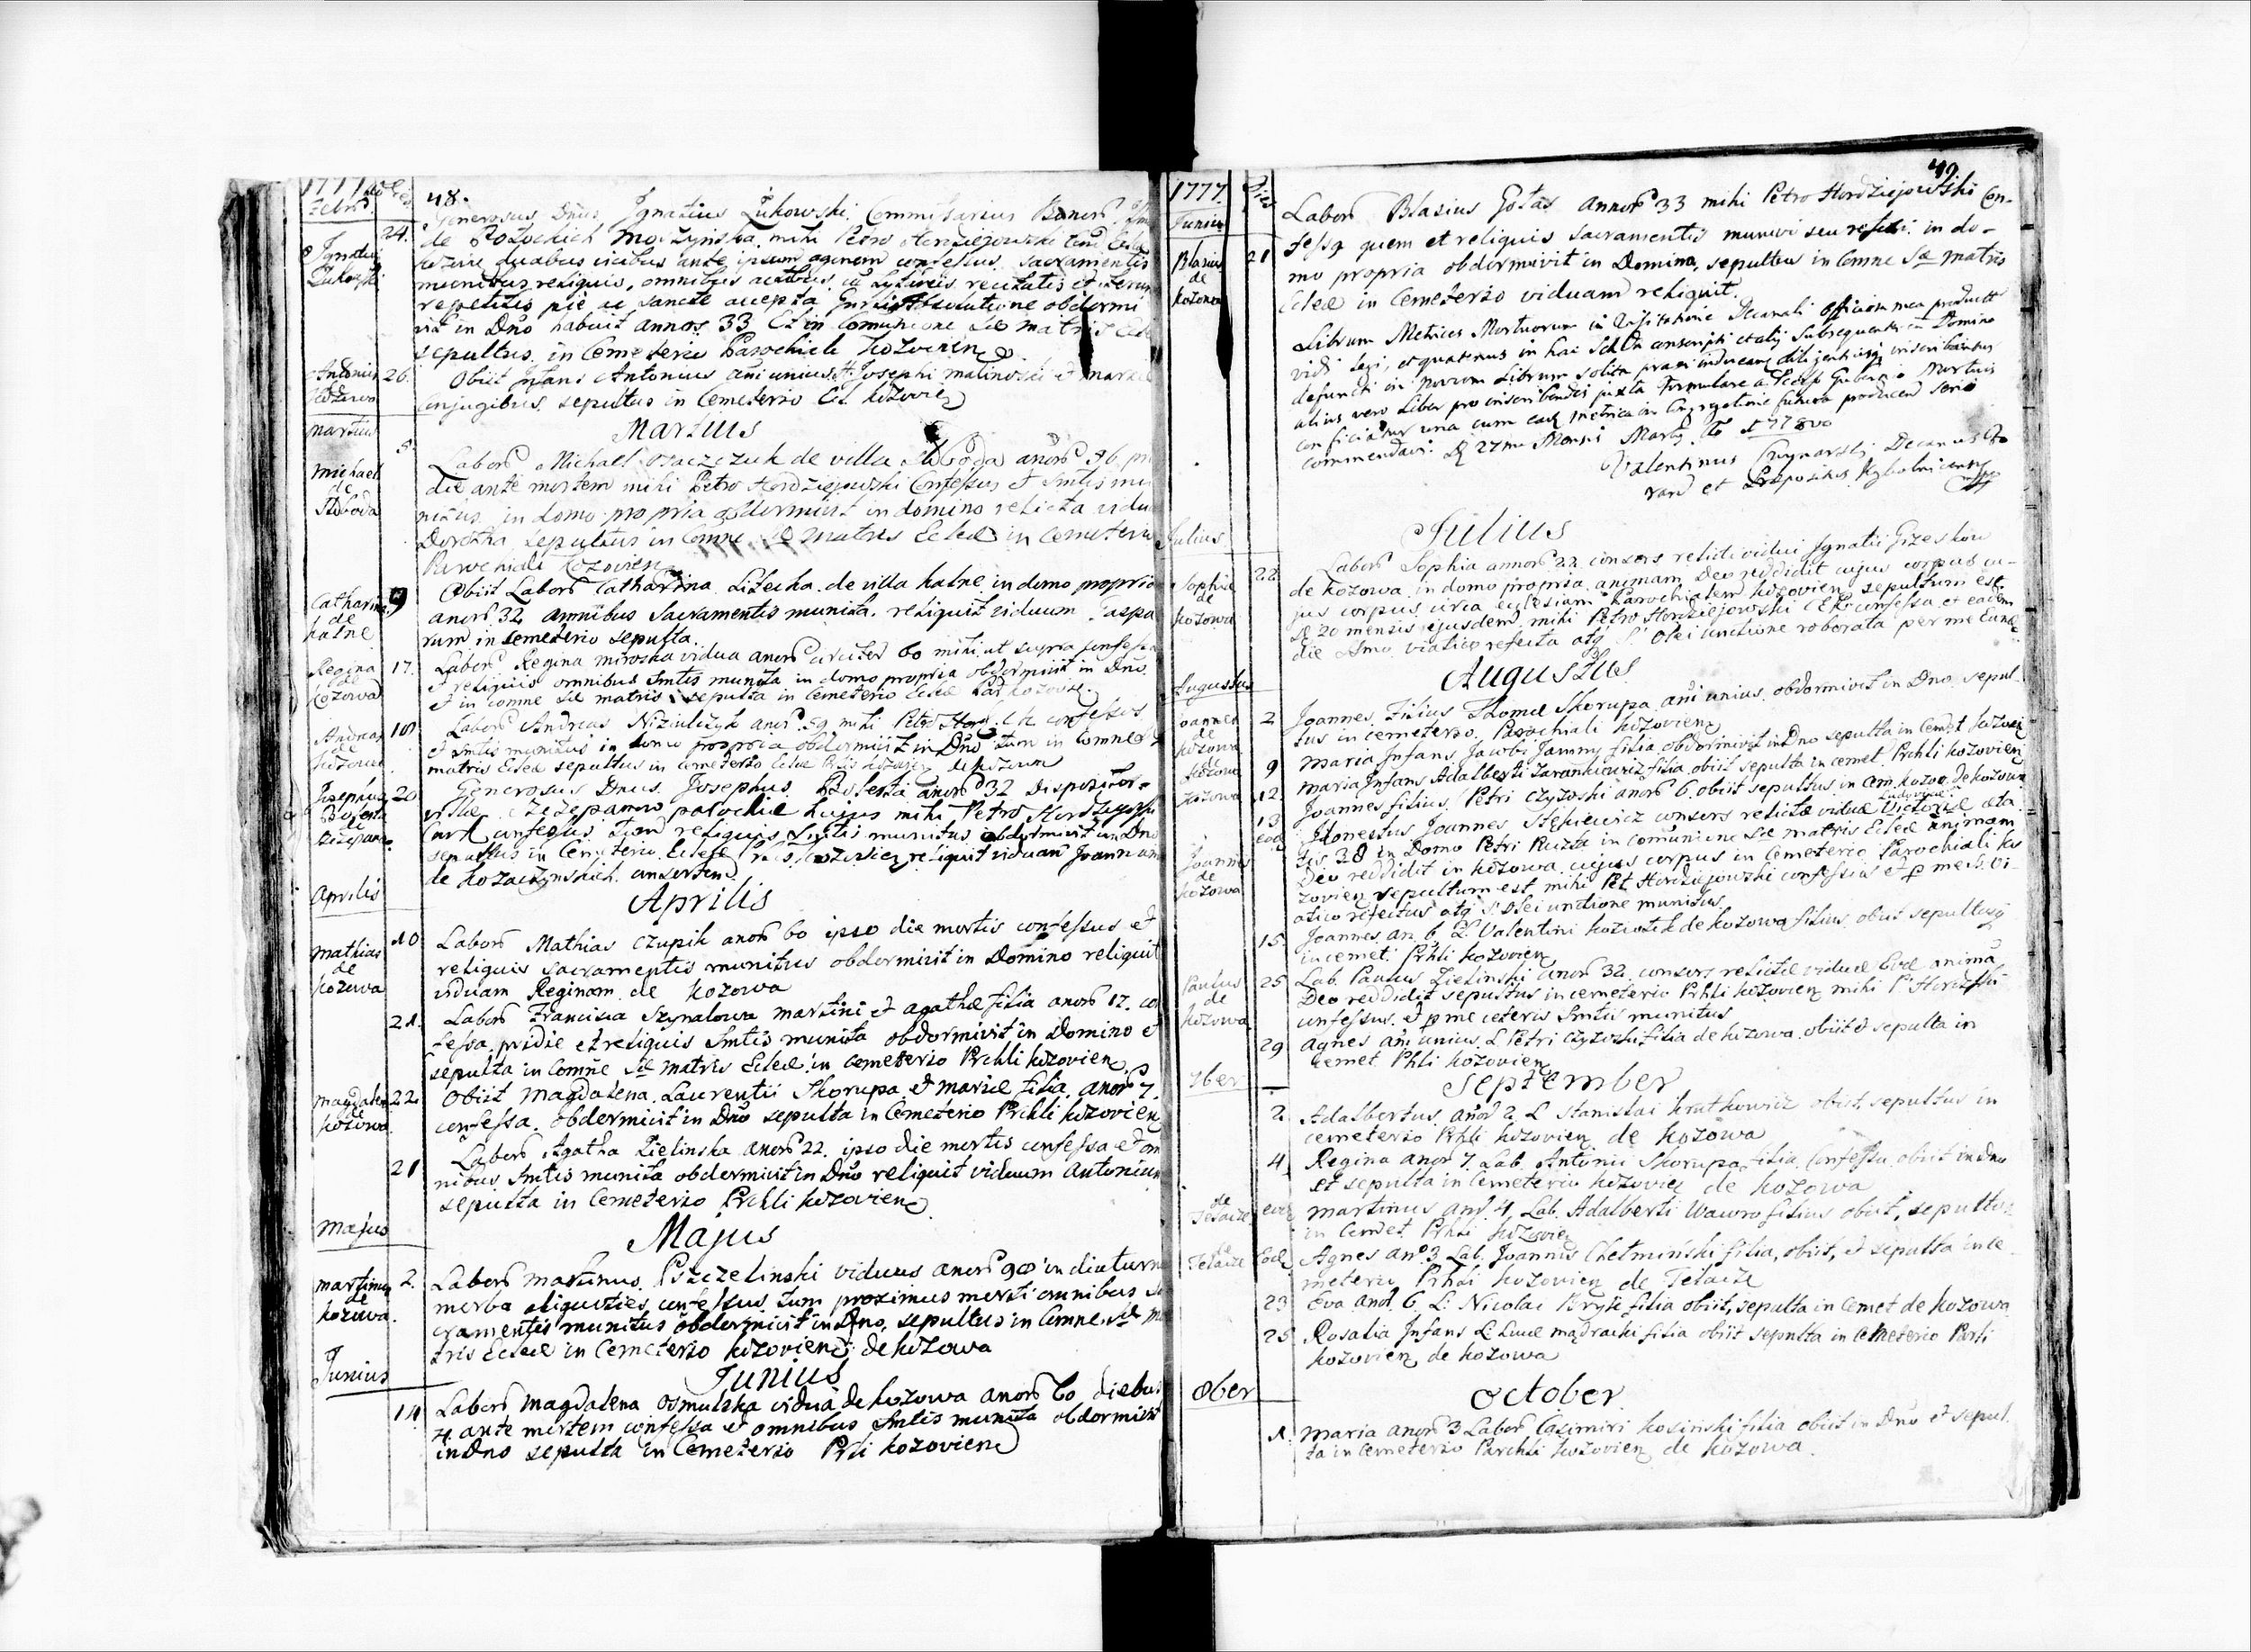 1777
Febr
48.
24.
Generosus Dnus Ignatius Żukowski Commissarius Bonor
Ignatius
Żukowski
de Potockich Moszyńska mihi Petro Hordziejowski
duabus vicibus ante ipsum agonem confessus sacramentis
munitus reliquis, omnibus actibus, cu Lytaniis recitatis et iterum
repetitis pie ac sancte accepta absolutione obdormi
vit in Dno habuit annos 33 Et in Comunione Sae matris
sepultus in Cemeterio Parochiali Kozovien
Antonius
de
Kozowa
26.
Obiit Infans Antonius ani unius Josephi malinoski et
Conjugibus sepultus in Cemeterio Kozovien
Martius
Martius
Michael
de
Słoboda
5
Labors Michael Osaczczuk de villa Słoboda anors 36
die ante mortem mihi Petro Hordziejowski Confessus et Smtis mu
nitus in domo propria obdormivit in domino relicta vidu
Dorotha Sepultus in Comne Sae Matris Eclae in Cemeterio
Parochiali Kozovien
Catharina
de
Kalne
9
Obiit Labors Catharina Litecka de villa Kalne in domo propria
anors 32 omnibus Sacramentis munita reliquit viduum Caspa
rum in Cemeterio sepulta.
Regina
de
Kozowa
17.
Labors Regina miroska vidua anors circiter 60 mihi ut supra confessa
et reliquis omnibus Smtis munita in domo propria obdormivit in Dno
et in comne Sae matris sepulta in Cemeterio Eclae Par Kozovie.
Andreas
de
Kozowa
18.
Labors Andreas Niziulczyk anor 59 mihi Petro Hord confessus
et Smtis munitus in domo propria obdormivit in Dno tum in Comne
matris Eclae sepultus in Cemeterio de Kozowa
Josephus
20
Generosus Dnus Josephus anors 32 Dispositor
villae parochiae hujus mihi Petro Hordziejowski
confessus tum reliquis Smtis munitus obdormivit in Dno
sepultus in Cemeterio reliquit viduam Joannam
de Kozaczynskich
Aprilis
Aprilis
Mathias
de
Kozowa
10
Labors Mathias Czupik anors 60 ipso die mortis confessus et
reliquis sacramentis munitus obdormivit in Domino reliquit
viduam Reginam de Kozowa
21.
Labors Francisca Szynalowa Martini et agathae filia anors 17. con
fessa pridie et reliquis Smtis munita obdormivit in Domino et
sepulta in Comne Sae matris Eclae in Cemeterio Prchli Kozovien
Magdalena
de
Kozowa
22
Obiit Magdalena Laurentii Skorupa et mariae filia anors 7.
confessa. obdormivit in Dno sepulta in Cemeterio Prchli Kozovien
21
Labors Agatha Zielinska anors 22. ipso die mortis confessa et om
nibus Smtis munita obdormivit in Dno reliquit viduum Antonium
sepulta in Cemeterio Prchli Kozovien
Majus
Majus
martinus
de
Kozowa.
2.
Labors martinus Pszczelinski viduus anors 90 in diuturn
morbo aliquoties confessus tum proximus morti omnibus Sa
cramentis munitus obdormivit in Dno, sepultus in Comne Sae Ma
tris Eclae in Cemeterio Kozovien de Kozowa
Junius
Junius
14
Labors Magdalena Osmulska vidua de Kozowa anors 60 diebus
4 ante mortem confessa et omnibus Smtis munita obdormivit
in Dno sepulta in Cemeterio Prli Kozovien
1777
Dies
49.
Junius
Blasius
de
Kozowa
21
Labors Blasius Gołas annors 33 mihi Petro Hordziejowski Con-
fessq quem et reliquis sacramentis munivi seu refeci in do-
mo propria obdormivit in Domino, sepultus in Comne Sae Matris
Eclae in Cemeterio viduam reliquit.
Librum Metrices Mortuorum in Visitatione Decanali Officiose mea product
vidi legi, et quatenus in hac conscripti et alij Subsequenter in Domino
defuncti in novum Librum solita praxi inducant diligentiusq inscribantur
alius vero Liber pro inscribendis juxta Formulare a Gubernio Mortuis
conficiatur una cum eadq Metrica in Congregatione futura producend serio
commendavi. D 27ma Mensis Martij Ao 1778vo
Valentinus Decanus
et Praepositus
Julius
Julius
Sophia
de
Kozowa
22.
Labors Sophia annors 22 consors relicti vidui Ignatii Grzeskow
de Kozowa in domo propria animam Deo reddidit cujus corpus cu-
jus corpus circa ecclesiam Parochialem Kozovien sepultum est
D 20 mensis ejusdem mihi Petro Hordziejowski confessa et eadem
die Smo viatico refecta atq S. Olei unctione roborata per me
Augustus
Augustus
Joannes
de
Kozowa
2
Joannes Filius Thomae Skorupa ani unius obdormivit in Dno sepul-
tus in cemeterio Parochiali Kozovien
de
Kozowa
9
Maria Infans Jacobi Jammy filia obdormivit in Dno sepulta in Cemet Kozovien
Kozowa
12.
Maria Infans Adalberti Zarankiewicz filia obiit sepulta in cemet. Prchli Kozovien
13
Joannes filius Petri Czyzoski anors 6. obiit sepultus in Cem. Kozov. de Kozowa
Joannes
de
Kozowa
eod
Honestus Joannes Stęskiewicz consors relictae viduae Victoriae aeta
tis 38 in Domo Petri Ruzta in comunione Sae matris Eclae animam
Deo reddidit in Kozowa cujus corpus in Cemeterio Parochiali Ko
zovien sepultum est mihi Pet Hordziejowski confessus et p me S. Vi
atico refectus atq S. Olei unctione munitus
15.
Joannes an. 6 L. Valentini Koziołek de Kozowa filius obiit sepultusq
in cemet. Prhli Kozovien
Paulus
de
Kozowa
25
Lab. Paulus Zielinski anors 32. consors relictae viduae Evae anima
Deo reddidit sepultus in cemeterio Prhli Kozovien mihi P Hordzski
confessus. et p me ceteris Smtis munitus
29
Agnes ani unius L Petri Czyzoski filia de Kozowa obiit et sepulta in
Cemet Phli Kozovien
7ber
September
2
Adalbertus anor 2 L Stanislai Krutkowicz obiit sepultus in
cemeterio Prhli Kozovien de Kozowa
4
Regina anor 7. Lab. Antonii Skorupa filia Confessa obiit in Dno
et sepulta in Cemeterio Kozovien de Kozowa
de
Telacze
eod
Martinus anr 4, Lab. Adalberti Wawro filius obiit, sepultus
in Cemet. Prhli Kozovien
de
Telacze
Eod
Agnes ano 3 Lab. Joannis Chełmiński filia, obiit, et sepulta in Ce
meterio Prhli Kozovien de Telacze
23
Eva anor 6. L. Nicolai Bryk filia obiit, sepulta in Cemet de Kozowa
25
Rosalia Infans L. Lucae mądracki filia obiit sepulta in Cemeterio Parli
Kozovien de Kozowa
8ber
October
1.
Maria anor 3 Labors Casimiri Kosinski filia obiit in Dno et sepul
ta in Cemeterio Parchli Kozovien de Kozowa.